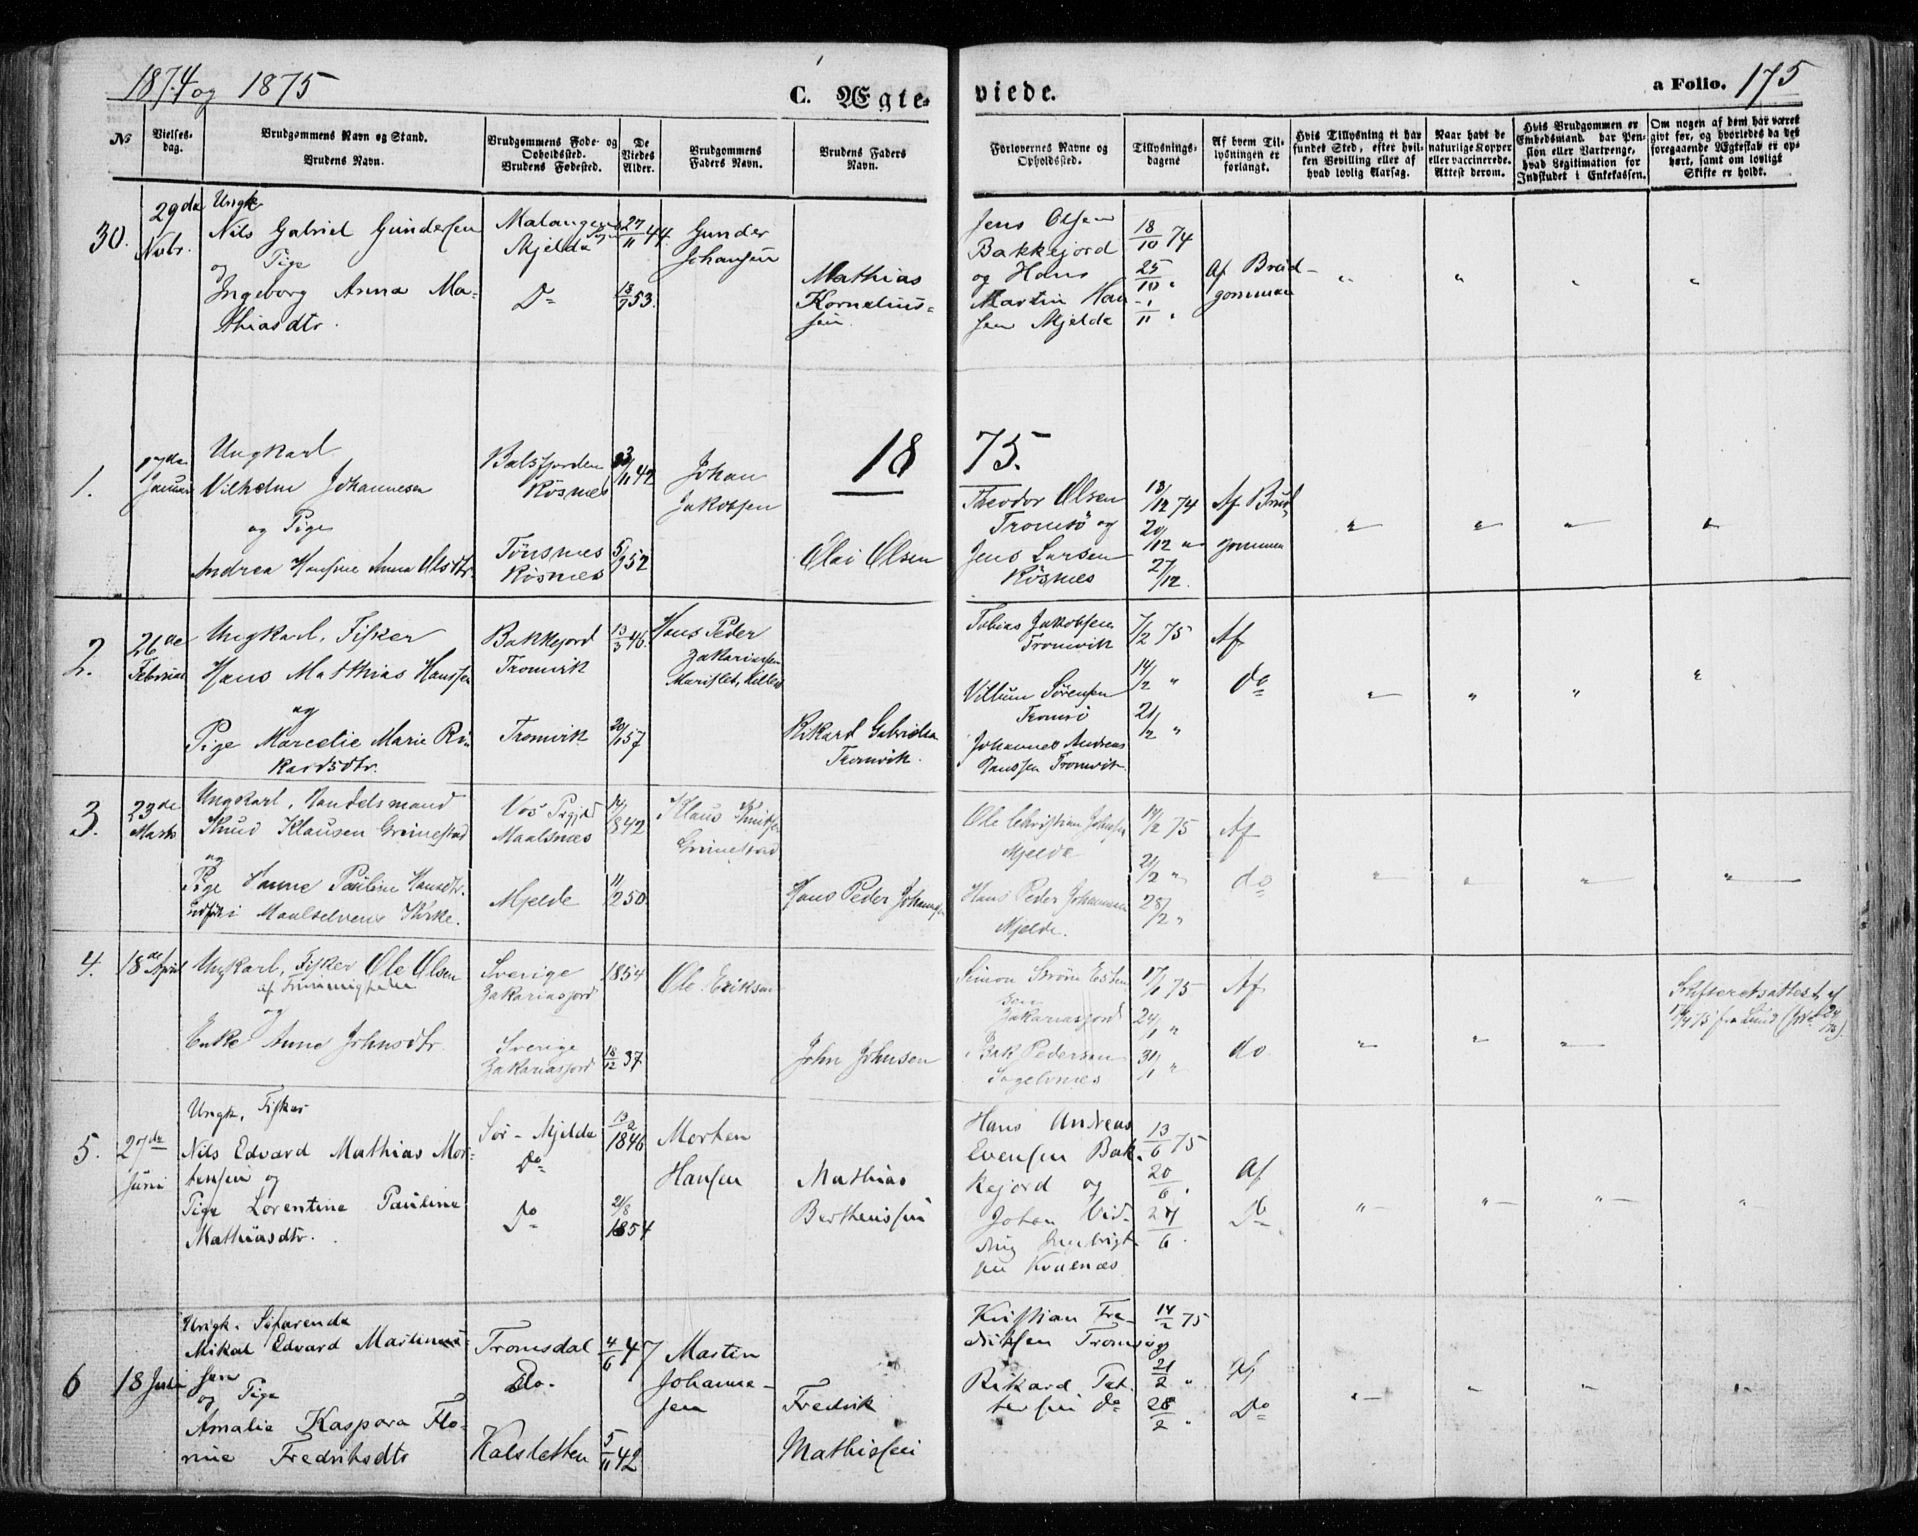 1874 og 1875
C. Ægte-
viede.
a Folio. 175
No
Vielses-
dag.
Brudgommens Navn og Stand.
Brudens Navn.
Brudgommens Føde- og
Opholdssted.
Brudens Fødested.
De
Viedes
Alder.
Brudgommens
Faders Navn.
Brudens Faders
Navn.
Forlovernes Navne og
Opholdssted.
Tillysnings-
dagene
Af hvem Til-
lysningen er
forlangt.
Hvis Tillysning ei har
fundet Sted, efter hvil-
ken Bevilling eller af
hvad lovlig Aarsag.
Naar havt de
naturlige Kopper
eller vaccinerede.
Attest derom.
Hvis Brudgommen er
Embedsmand, har Pen-
sion eller Vartpenge,
hvad Legitimation for
Indskudet i Enkekassen.
Om nogen af dem har været
gift før, og hvorledes da det
foregaaende Ægteskab er op-
hørt, samt om lovligt
Skifte er holdt.
30.
29de
Novbr.
Ungk
Nils Gabriel Gundersen
og Pige
Ingeborg Anna Ma-
thiasdtr.
Mjelde
Do
27/11 44.
13/9 53.
Gunder
Johansen
Mathias
Kornelius-
sen
Jens Olsen
Bakkejord
og Hans
Martin Han-
sen Mjelde
18/10 74
25/10 "
1/11 "
Af Brud-
gommen
" " " "
18 75.
1.
17de
Januar
Ungkarl
Vilhelm Johannesen
og Pige
Andrea Hansine Anna Olsdtr.
Balsfjorden
Røsnes
Tønsnes
Røsnes
/11 42
5/9 52
Johan
Jakobsen
Olai Olsen
Theodor Olsen
Tromsø og
Jens Larsen
Røsnes
13/12 74
20/12 "
27/12.
Af Brud-
gommen
" " " "
2.
26de
Februar
Ungkarl, Fisker
Hans Mathias Hanssen
og
Pige Marcelie Marie Ri-
kardsdtr.
Bakkejord
Tromvik
Tromvik
13/3 46.
20/1 57
Hans Peder
Zakariassen
Rikard Gabrielsen
Tromvik.
Tobias Jakobsen
Tromvik
Villum Sørensen
Tromsø
Johannes Andreas
Hanssen Tromvik.
7/2 75
14/2 "
21/2 "
Af
do
" " " "
3.
23de
Marts
Ungkarl, Handelsmand
Knud Klausen Grimestad
og
Pige Hanne Pauline Hansdtr.
indført i Maalselvens Kirke.
Vos Prgjd
Maalsnes
Mjelde
14/8 42
11/2 50.
Klaus Knutsen
Grimestad
Hans Peder Johannesen
Ole Christian Johnsen
Mjelde
Hans Peder Johannesen
Mjelde.
14/2 75
21/2 "
28/2 "
Af
do
" " " "
4.
18de April
Ungkarl, Fisker Ole Olsen
af
og
Enke Anne Johnsdtr.
Sverige
Zakariasjord
Sverige
Zakariasjord
1854
18/12 37
Ole Eriksen
John Johnsen
Simon Strøm Esten-
sen
Zakariasjord
Isak Pedersen
Sagelvnes
17/1 75
24/1 "
31/1 "
Af
do
" " "
Skifteretsattest af
5.
27de
Juni
Ungk. Fisker
Nils Edvard Mathias Mor-
tensen og
Pige Lorentine Pauline
Mathiasdtr.
Sør-Mjelde
Do
Do
13/2
1846
21/8
1854
Morten
Hansen
Mathias
Berthenssen
Hans Andreas
Evensen Bak-
kejord og
Johan Lud-
vig Ingebrigt-
sen Kvænæs
13/6 75
20/6 "
27/6 "
Af
Do
" " " "
6
18 Juli
Ungk. Søfarende
Mikal Edvard Martinus-
sen
og Pige
Amalie Kaspara Flo-
rine Fredriksdtr
Tromsdal
Do.
Kalsletten
4/6 47
5/11 42
Martin
Johanne-
sen
Fredrik
Mathissen
Kristian Fre-
driksen Tromsø og
Rikard Pet-
tersen do
14/2 75
21/2 "
28/2 "
Af
Do
" " " "